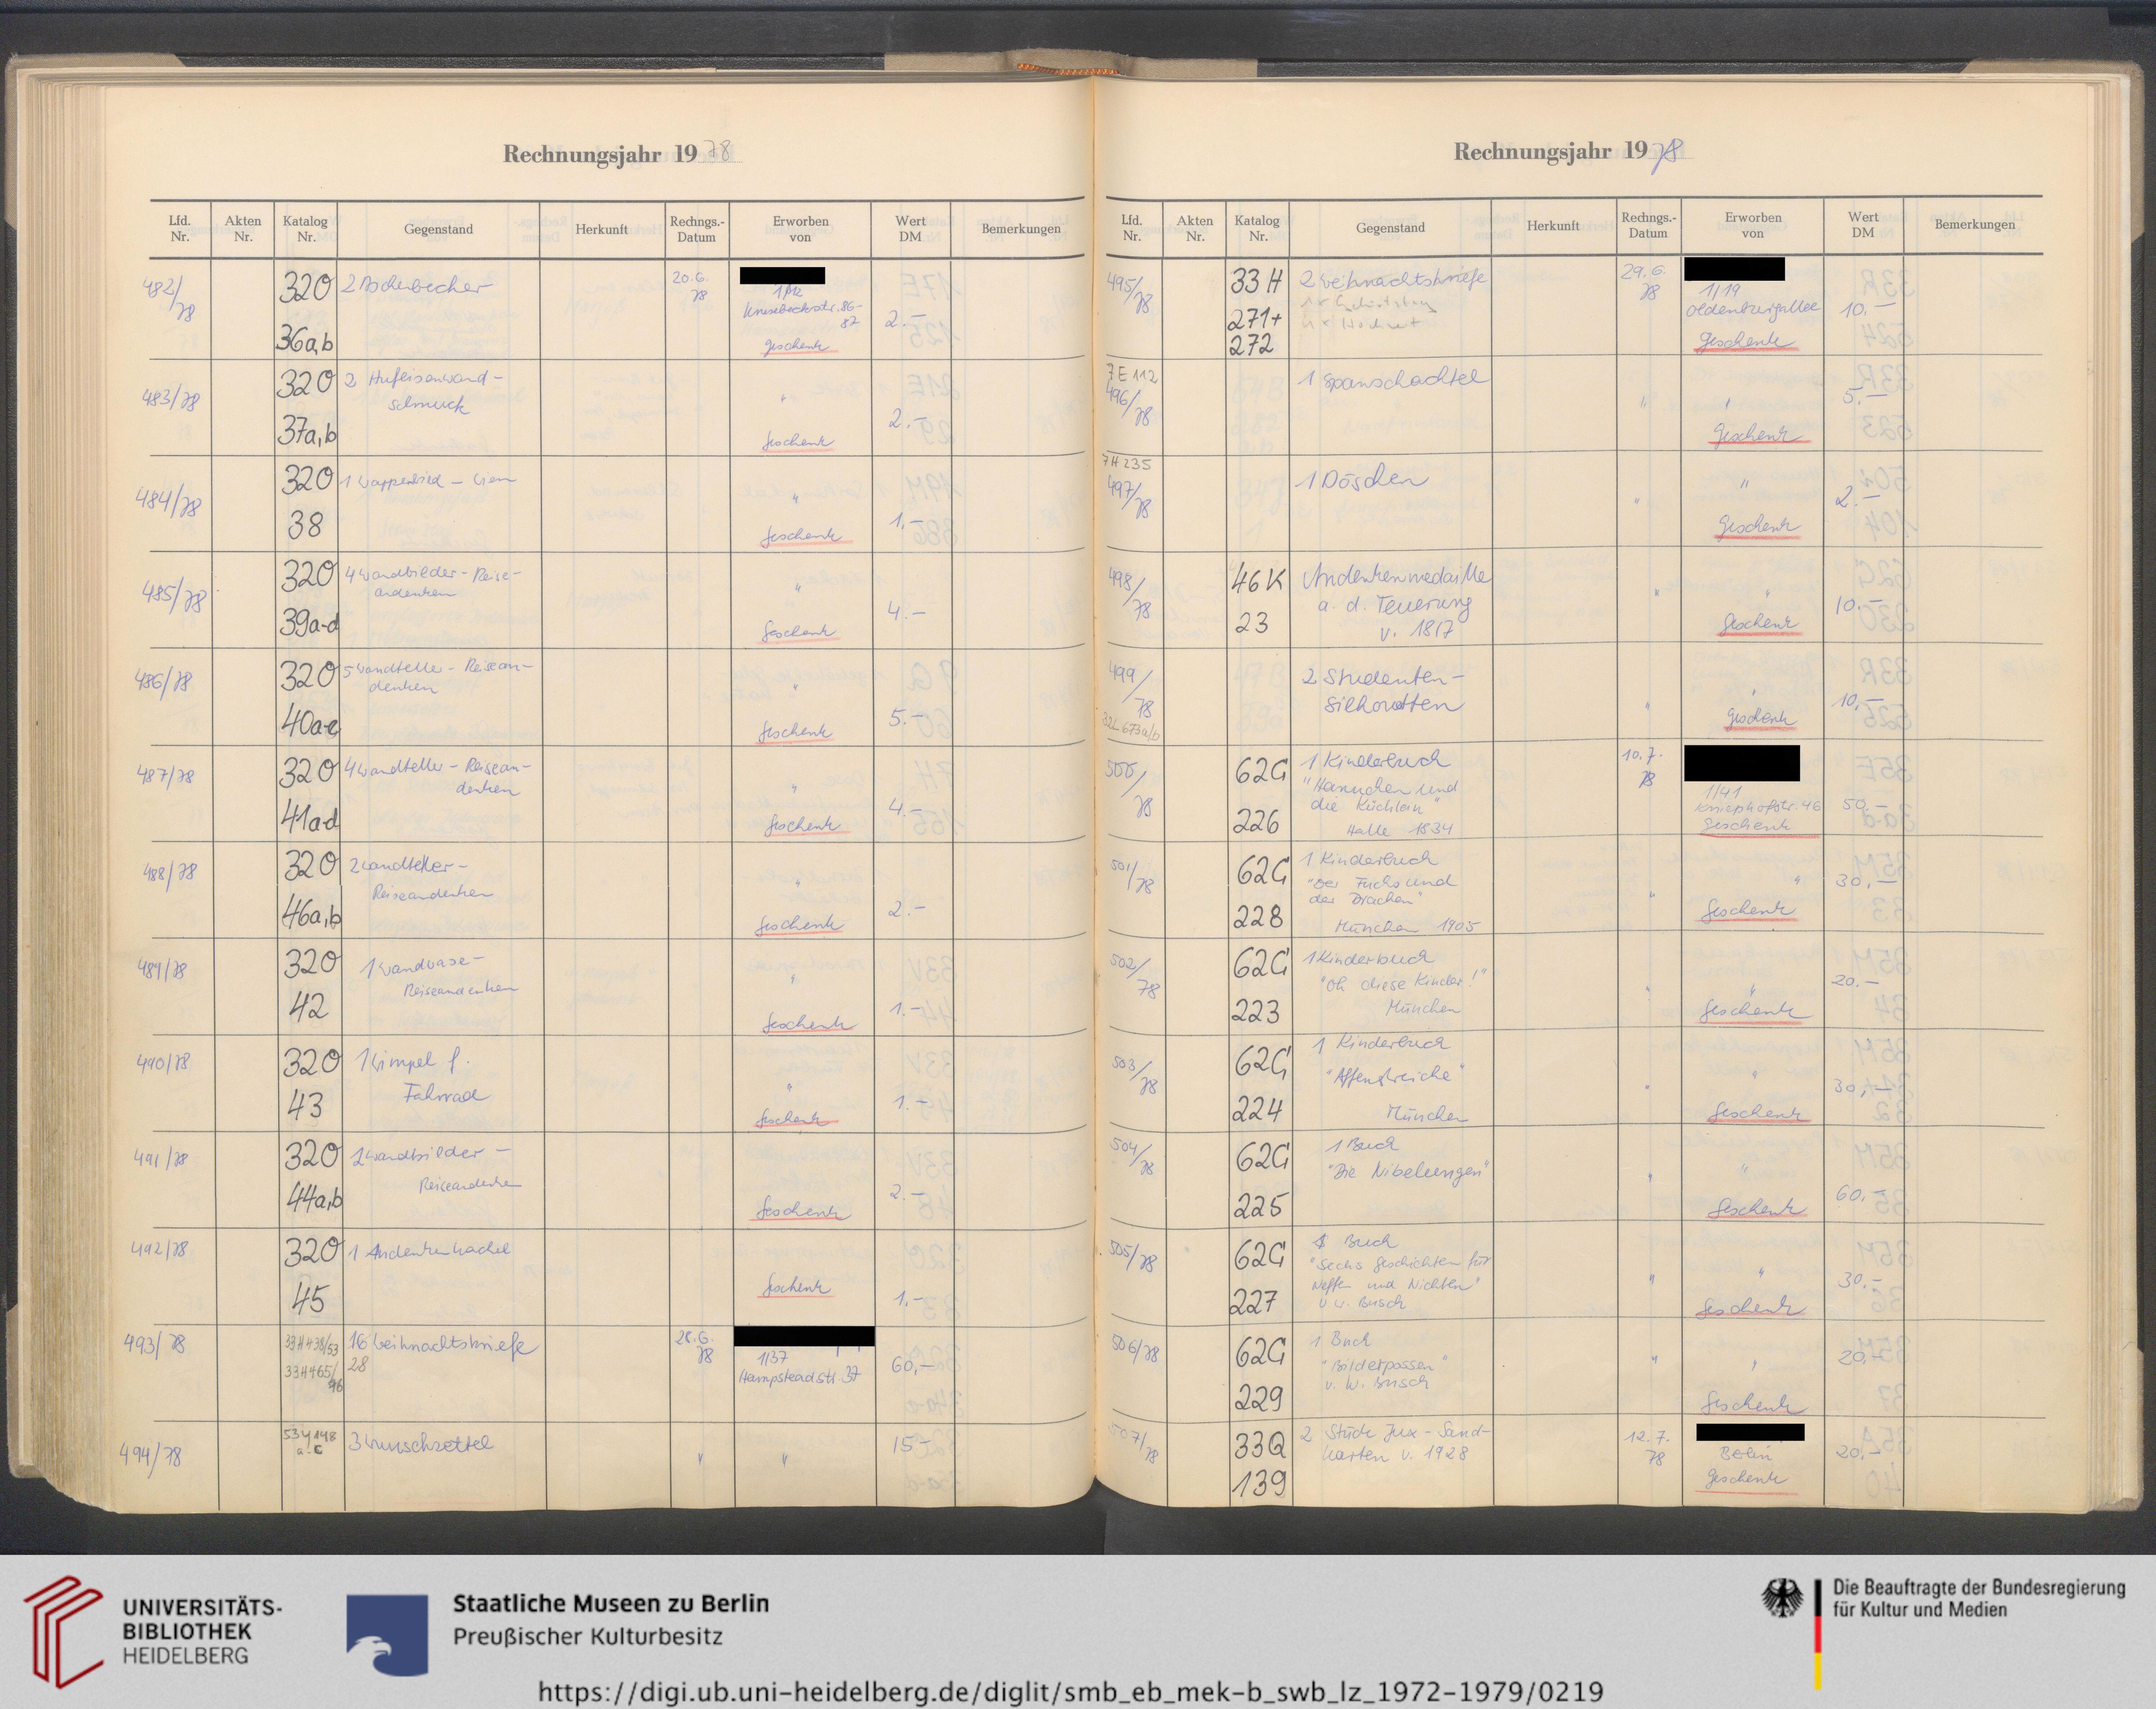 Rechnungsjahr 1978
Lfd. Nr.
Akten Nr.
Katalog Nr.
Gegenstand
Herkunft
Rechngs.-Datum
Erworben von
Wert DM
Bemerkungen
482/78 320 2 Ascherbecher 20.6.
36a,b 78 1/12
Knesebeckstr. 86-
87 2.-
Geschenk
483/78 320 2 Hufeisenwand- "
schmuck 2.-
37a,b Geschenk
484/78 320 1 Wappenbild - Wien "
38 Geschenk 1.-
485/78 320 4 Wandbilder - Reise- "
andenken 4.-
39a-d Geschenk
486/78 320 5 Wandteller - Reisean- "
denken 5.-
40a-e Geschenk
487/78 320 4 Wandteller - Reisean- "
denken 4.-
41a-d Geschenk
488/78 320 2 Wandteller- "
Reiseandenken 2.-
46a,b Geschenk
489/78 320 1 Wandvase- "
Reiseandenken 1.-
42 Geschenk
490/78 320 1 Wimpel f. "
Fahrrad 1.-
43 Geschenk
491/78 320 2 Wandbilder -
Reiseandenken 2.-
44a,b Geschenk
492/78 320 1 Andenkenkachel
45 Geschenk 1.-
493/78 33H438/53 16 Weihnachtsbriefe 28.6.
33H465/ 28 78 1/37 60,-
96 Hampsteadstr. 37
494/78 53Y148 3 Wunschzettel " " 15-
a-c
Rechnungsjahr 1978
Lfd. Nr.
Akten Nr.
Katalog Nr.
Gegenstand
Herkunft
Rechngs.-Datum
Erworben von
Wert DM
Bemerkungen
495/78 33H 2 Weihnachtsbriefe 29.6.
1 x Geburtstag 78 1/19
271+ 1 x Hochzeit Oldenburgallee 10.-
272 Geschenk
7E112
496/78 1 Spanschachtel " " 5.-
Geschenk
7H235
497/78 1 Döschen " " 2.-
Geschenk
498/78 46K Andenkenmedaille " "
a. d. Teuerung 10.-
23 v. 1817 Geschenk
499/78 2 Studenten- " "
Silhouetten 10,-
32L673a/b Geschenk
500/78 62G 1 Kinderbuch 10.7.
"Hannchen und 78
die Küchlein" 1/41
226 Halle 1834 Kniephofstr. 46 50.-
Geschenk
501/78 62G 1 Kinderbuch
"Der Fuchs und " " 30,-
der Drachen"
228 München 1905 Geschenk
502/78 62G 1 Kinderbuch
"Oh diese Kinder!" " " 20.-
223 München Geschenk
503/78 62G 1 Kinderbuch
"Affenstreiche" " " 30,-
224 München Geschenk
504/78 62G 1 Buch
"Die Nibelungen" " "
225 Geschenk 60,-
505/78 62G 1 Buch
"Sechs Geschichten für
Neffen und Nichten" " " 30.-
227 v W. Busch Geschenk
506/78 62G 1 Buch
"Bilderpossen" " " 20,-
v. W. Busch
229 Geschenk
507/78 33Q 2 Stück Jux - Sand- 12.7.
karten v. 1928 78 Berlin 20,-
139 Geschenk
UNIVERSITÄTS-
BIBLIOTHEK
HEIDELBERG
Staatliche Museen zu Berlin
Preußischer Kulturbesitz
Die Beauftragte der Bundesregierung
für Kultur und Medien
https://digi.ub.uni-heidelberg.de/diglit/smb_eb_mek-b_swb_lz_1972-1979/0219